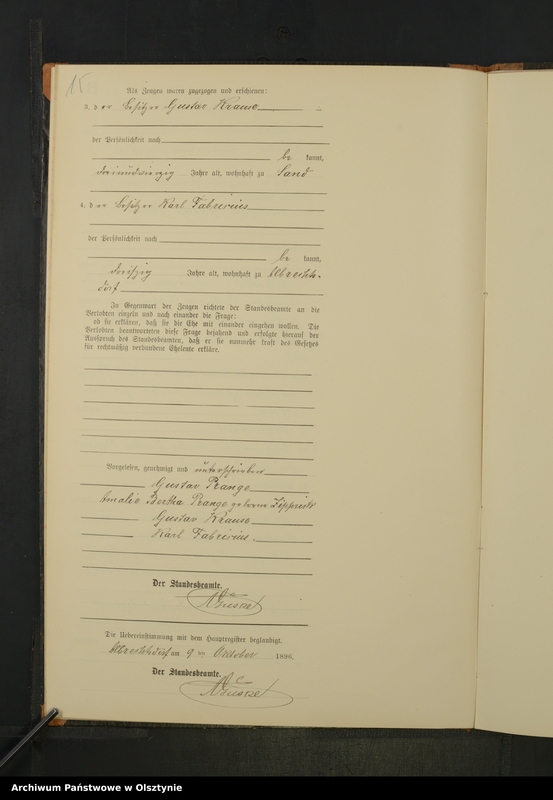 15
Als Zeugen waren zugezogen und erschienen:
3. der Besitzer Gustav Krause
der Persönlichkeit nach
be kannt,
dreiundvierzig Jahre alt, wohnhaft zu Sand
4. der Besitzer Karl Fabricius
der Persönlichkeit nach
be kannt,
dreißig Jahre alt, wohnhaft zu Albrechts-
dorf
In Gegenwart der Zeugen richtete der Standesbeamte an die
Verlobten einzeln und nach einander die Frage:
ob sie erklären, daß sie die Ehe mit einander eingehen wollen. Die
Verlobten beantworteten diese Frage bejahend und erfolgte hierauf der
Ausspruch des Standesbeamten, daß er sie nunmehr kraft des Gesetzes
für rechtmäßig verbundene Eheleute erkläre.
Vorgelesen, genehmigt und unterschrieben
Gustav Range
Amalie Bertha Range geborene
Gustav Krause
Karl Fabricius.
Der Standesbeamte.
Die Uebereinstimmung mit dem Hauptregister beglaubigt.
Albrechtsdorf am 9 ten Oktober 1890.
Der Standesbeamte.
Archiwum Państwowe w Olsztynie